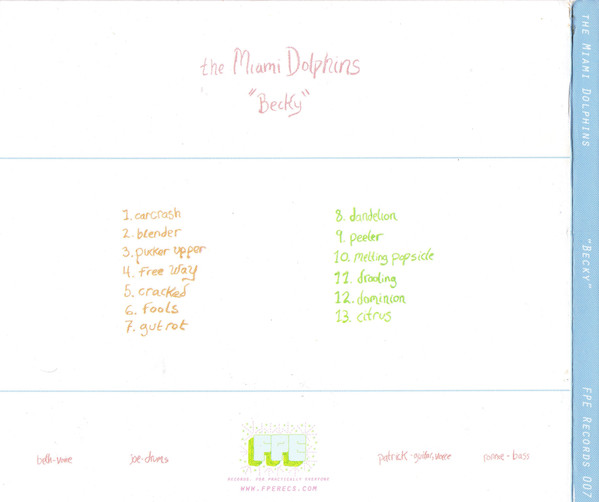 the Miami Dolphins
"Becky"
1. carcrash
2. blender
3. pucker upper
4. free way
5. cracked
6. fools
7. gut rot
8. dandelion
9. peeler
10. melting popsicle
11. drooling
12. dominion
13. citrus
beth-voice
joe-drums
FPE
RECORDS, FOR PRACTICALLY EVERYONE
WWW.FPERECS.COM
patrick-guitar, voice
ronnie-bass
THE MIAMI DOLPHINS
"BECKY"
FPE RECORDS 007